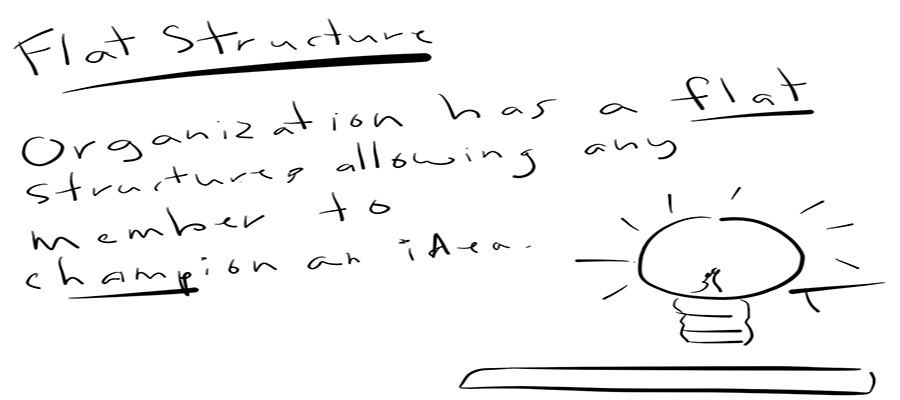 Flat Structure
Organization has a flat
structure, allowing any
member to
champion an idea.